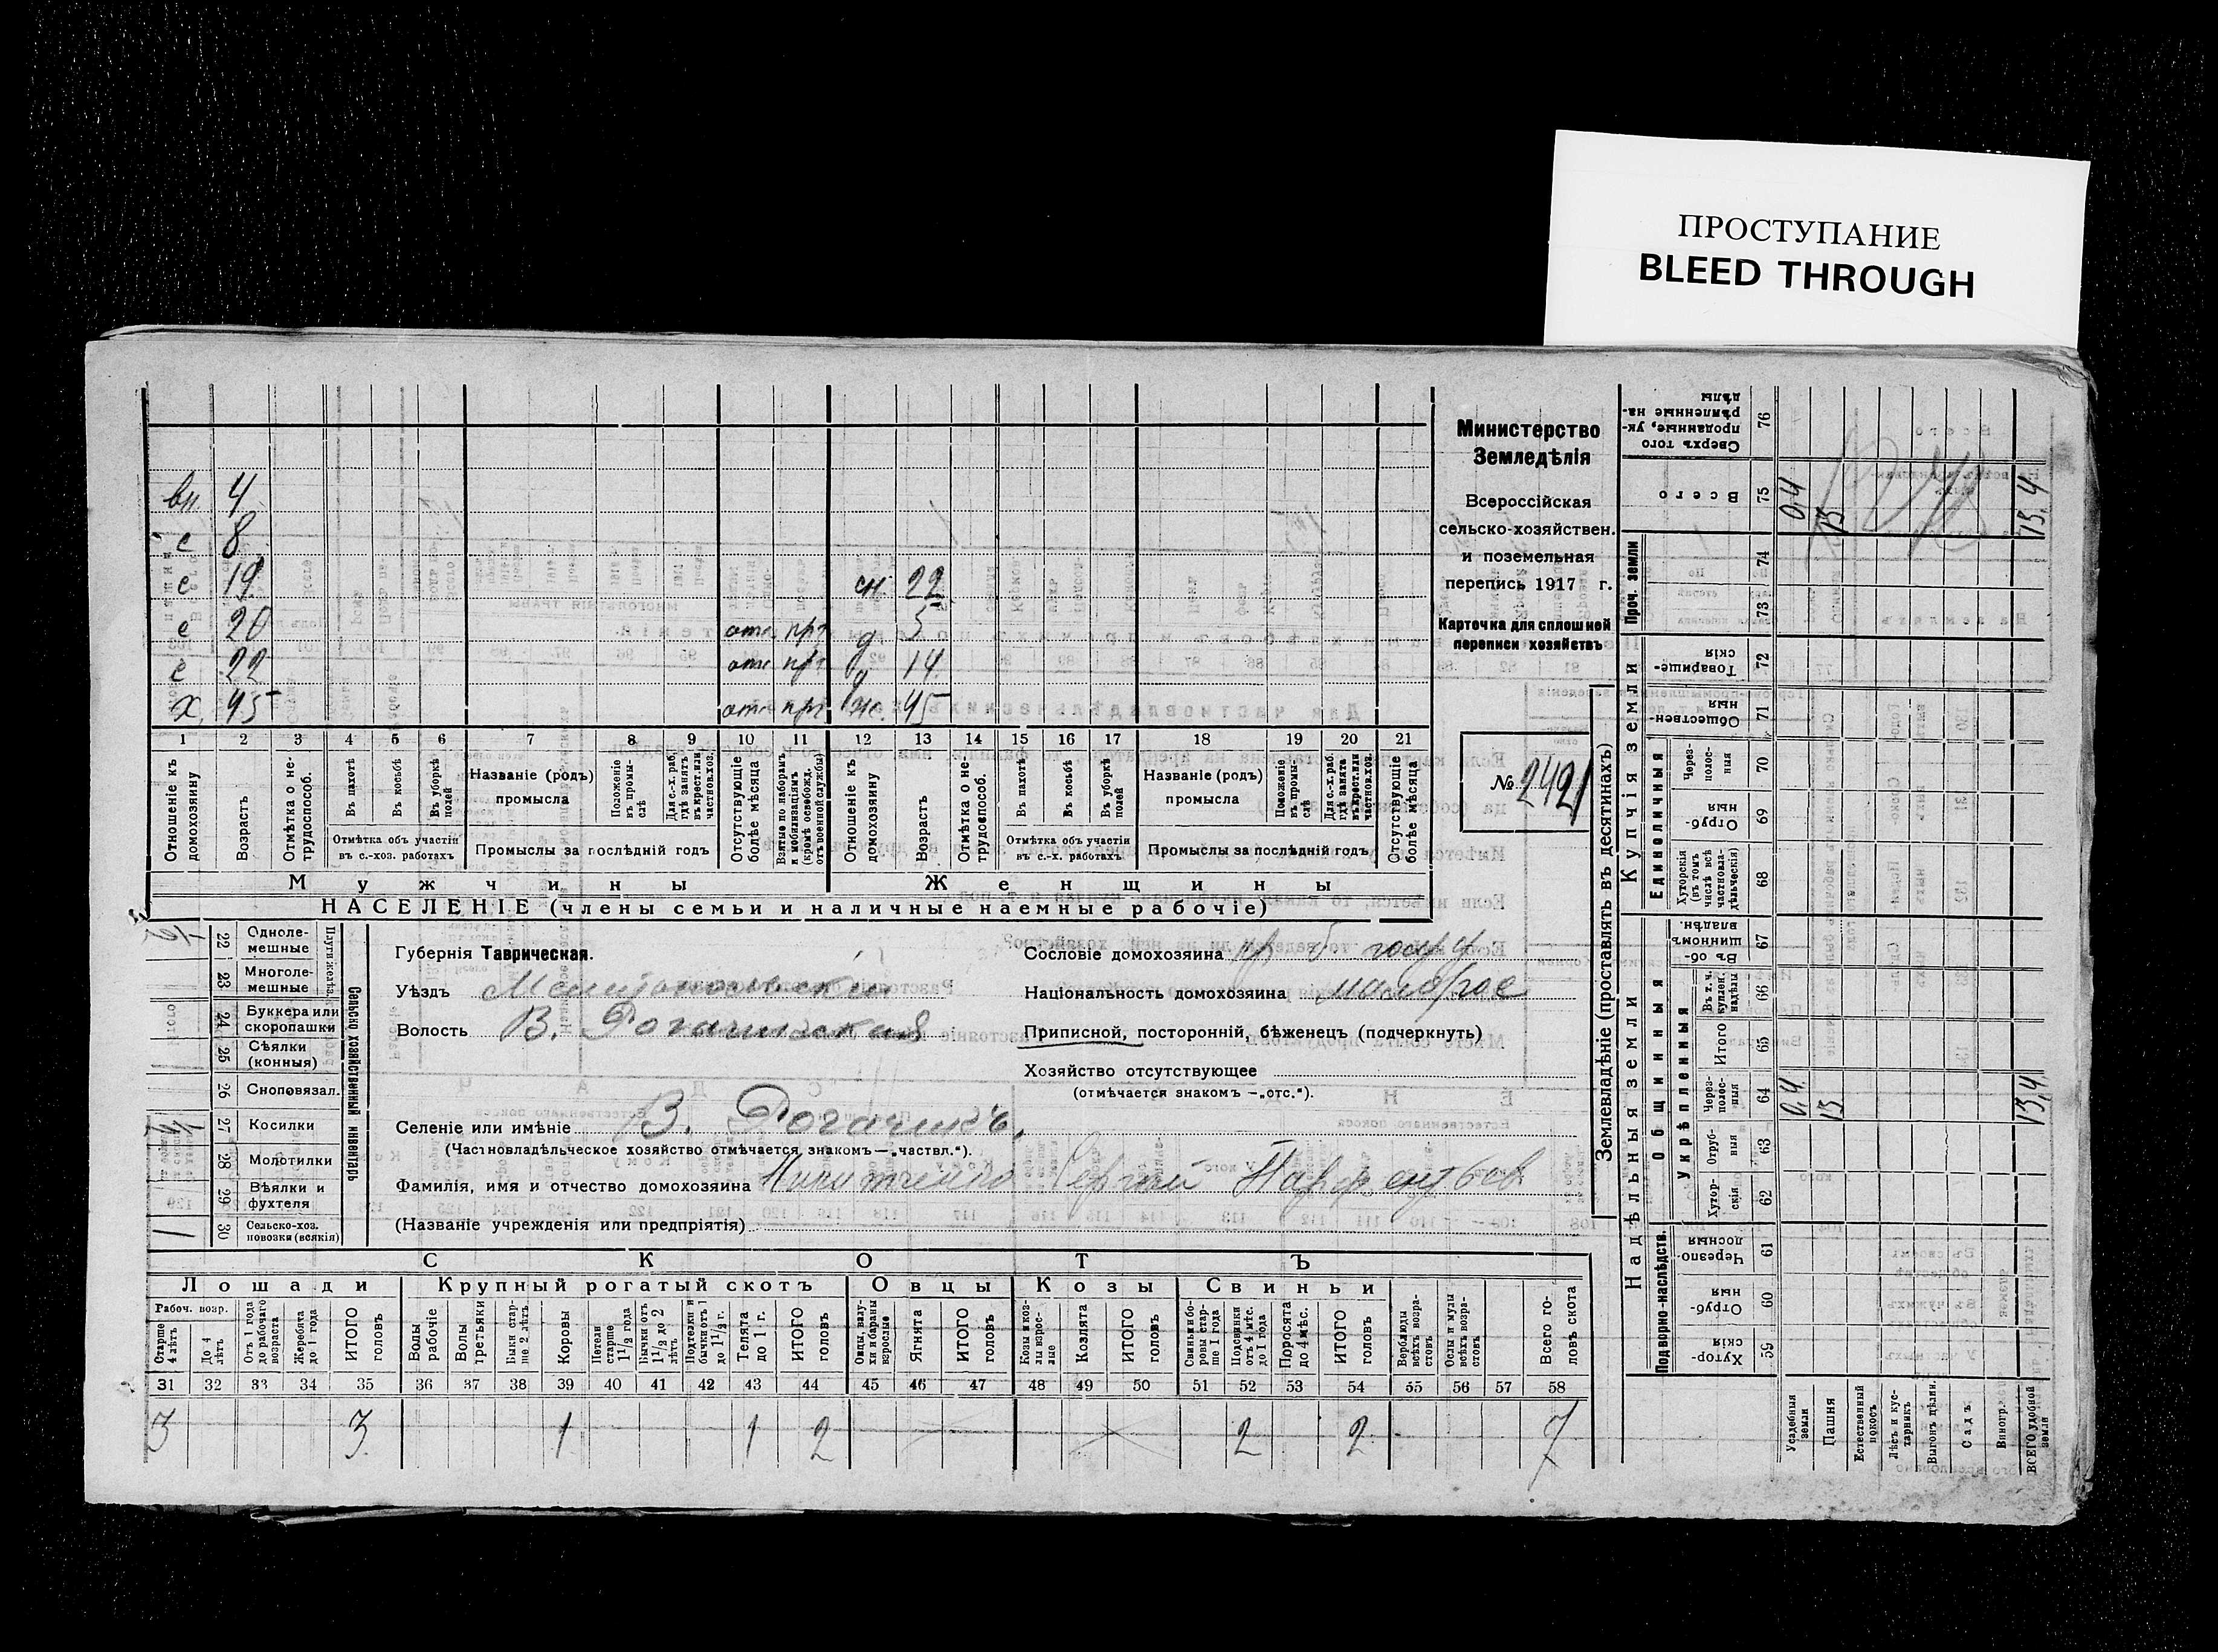 ПРОСТУПАНИЕ
BLEED THROUGH
вн. 4
с 8
с 19 сн. 22
с 20 отс. прз д 5
с 22 отс прз д 14
х 45 отс прз ж. 45
1 2 3 4 5 6 7 8 9 10 11 12 13 14 15 16 17 18 19 20 21
Отношеніе къ домохозяину
Возрастъ
Отмѣтка о нетрудоспособ.
Въ пахотѣ
Въ косьбѣ
Въ уборкѣ полей
Отмѣтка объ участіи въ с.-хоз. работахъ
Названіе (родъ) промысла
Положеніе въ промыслѣ
Для с.-х. раб. гдѣ занятъ въ крест. или частнов. хоз.
Промыслы за послѣдній годъ
Отсутствующіе болѣе мѣсяца
Взятые по наборамъ и мобилизаціямъ (кромѣ освобожд. отъ военной службы)
Отношеніе къ домохозяину
Возрастъ
Отмѣтка о нетрудоспособ.
Въ пахотѣ
Въ косьбѣ
Въ уборкѣ полей
Отмѣтка объ участіи въ с.-х. работахъ
Названіе (родъ) промысла
Положеніе въ промыслѣ
Для с.-х. раб. гдѣ занята въ крест. или частнов. хоз.
Промыслы за послѣдній годъ
Отсутствующіе болѣе мѣсяца
Мужчины Женщины
НАСЕЛЕНІЕ (члены семьи и наличные наемные рабочіе)
Министерство
Земледѣлія
Всероссійская
сельско-хозяйствен.
и поземельная
перепись 1917 г.
Карточка для сплошной
переписи хозяйствъ
№ 2421
Сельско хозяйственный инвентарь
Плуги желѣз.
22 Однолемешные
23 Многолемешные
24 Буккера или скоропашки
25 Сѣялки (конныя)
26 Сноповязал.
27 Косилки
28 Молотилки
29 Вѣялки и фухтеля
30 Сельско-хоз. повозки (всякія) 1
Губернія Таврическая.
Уѣздъ Мелитопольскій
Волость В. Рогачинская
Селеніе или имѣніе В. Рогачикъ.
(Частновладѣльческое хозяйство отмѣчается знакомъ—„частвл.“).
Фамилія, имя и отчество домохозяина Никитченко Сергий Парфентьев
(Названіе учрежденія или предпріятія)
Сословіе домохозяина кр б. госуд
Національность домохозяина малорос
Приписной, посторонній, бѣженецъ (подчеркнуть)
Хозяйство отсутствующее
(отмѣчается знакомъ —„отс.“).
СКОТЪ
Лошади Крупный рогатый скотъ Овцы Козы Свиньи
Рабоч. возр.
Старше 4 лѣтъ
До 4 лѣтъ
Отъ 1 года до рабочаго возраста
Жеребята до 1 года
ИТОГО головъ
Волы рабочіе
Волы третьяки
Быки старше 2 лѣтъ
Коровы
Нетели старше 1 1/2 года
Бычки отъ 1 1/2 до 2 лѣтъ
Подтелки и бычки отъ 1 до 1 1/2 г.
Телята до 1 г.
ИТОГО головъ
Овцы, валухи и бараны взрослые
Ягнята
ИТОГО головъ
Козы и козлы взрослые
Козлята
ИТОГО головъ
Свиньи боровы старше 1 года
Подсвинки отъ 4 мѣс. до 1 года
Поросята до 4 мѣс.
ИТОГО головъ
Верблюды всѣхъ возрастовъ
Ослы и мулы всѣхъ возрастовъ
Всего головъ скота
31 32 33 34 35 36 37 38 39 40 41 42 43 44 45 46 47 48 49 50 51 52 53 54 55 56 57 58
3 3 1 1 2 2 2 7
Землевладѣніе (проставлять въ десятинахъ)
Надѣльныя земли Купчія земли Проч. земли
Подворно-наслѣдств. Общинныя
Укрѣпленныя Единоличныя
Хуторскія 59
Отрубныя 60
Черезполосныя 61
Хуторскія 62
Отрубныя 63
Черезполосныя 64 0,4 13 13,4
Итого 65
Въ т. ч. куплен. надѣлы 66
Въ общинномъ владѣн. 67
Хуторскія (въ томъ числѣ всѣ частновладѣльческія) 68
Отрубныя 69
Черезполосныя 70
Общественныя 71
Товарищескія 72
73
74
Всего 75 0,4 13 13,4
Сверхъ того проданные, укрѣпленные надѣлы 76
Усадебныя земли
Пашня
Естественный покосъ
Лѣсъ и кустарникъ
Выгонъ дѣлимы.
Садъ
Виногр.
ВСЕГО удобной земли